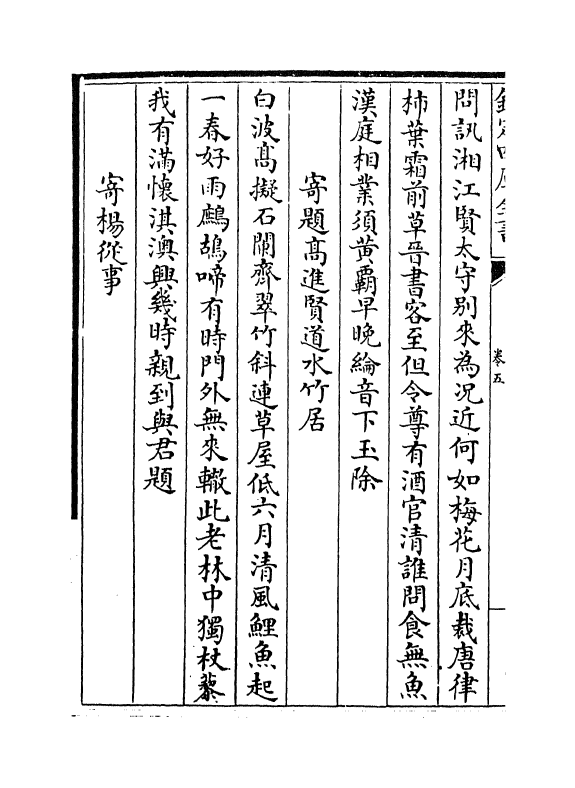 問訊湘江賢太守别來為况近何如梅花月底裁唐律
柿葉霜前草晉書客至但令尊有酒官清誰問食無魚
漢庭相業須黄霸早晚綸音下玉除
寄題髙進賢道水竹居
白波髙擬石闌齊翠竹斜連草屋低六月清風鯉魚起
一春好雨鷓鴣啼有時門外無來轍此老林中獨杖藜
我有滿懷淇澳興幾時親到與君題
寄楊從事
卷五